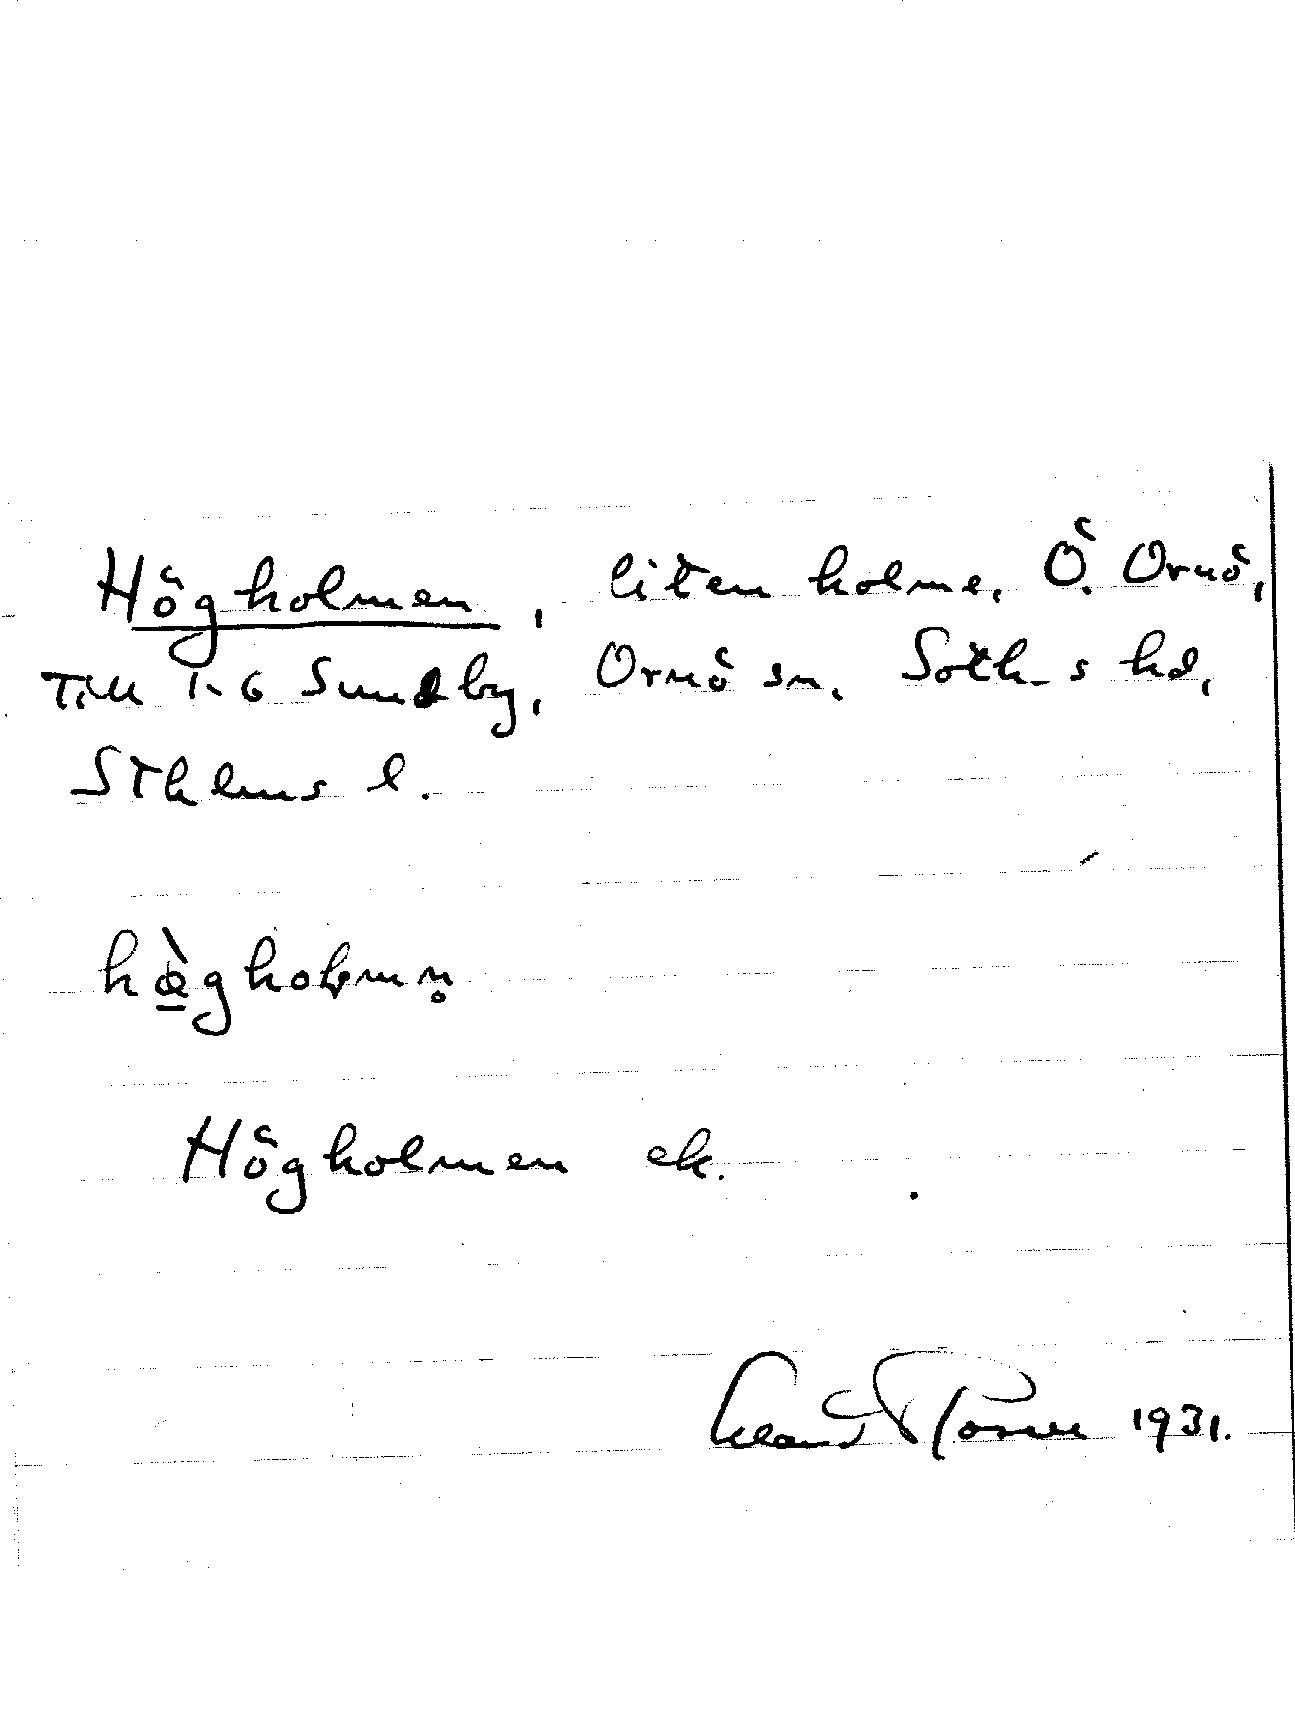 Högholmen, liten holme, Ö. Ornö,
Till 1-6 Sundby, Ornö sn, Soth-s hd,
Sthlms l.
Högholmen ek.
1931.